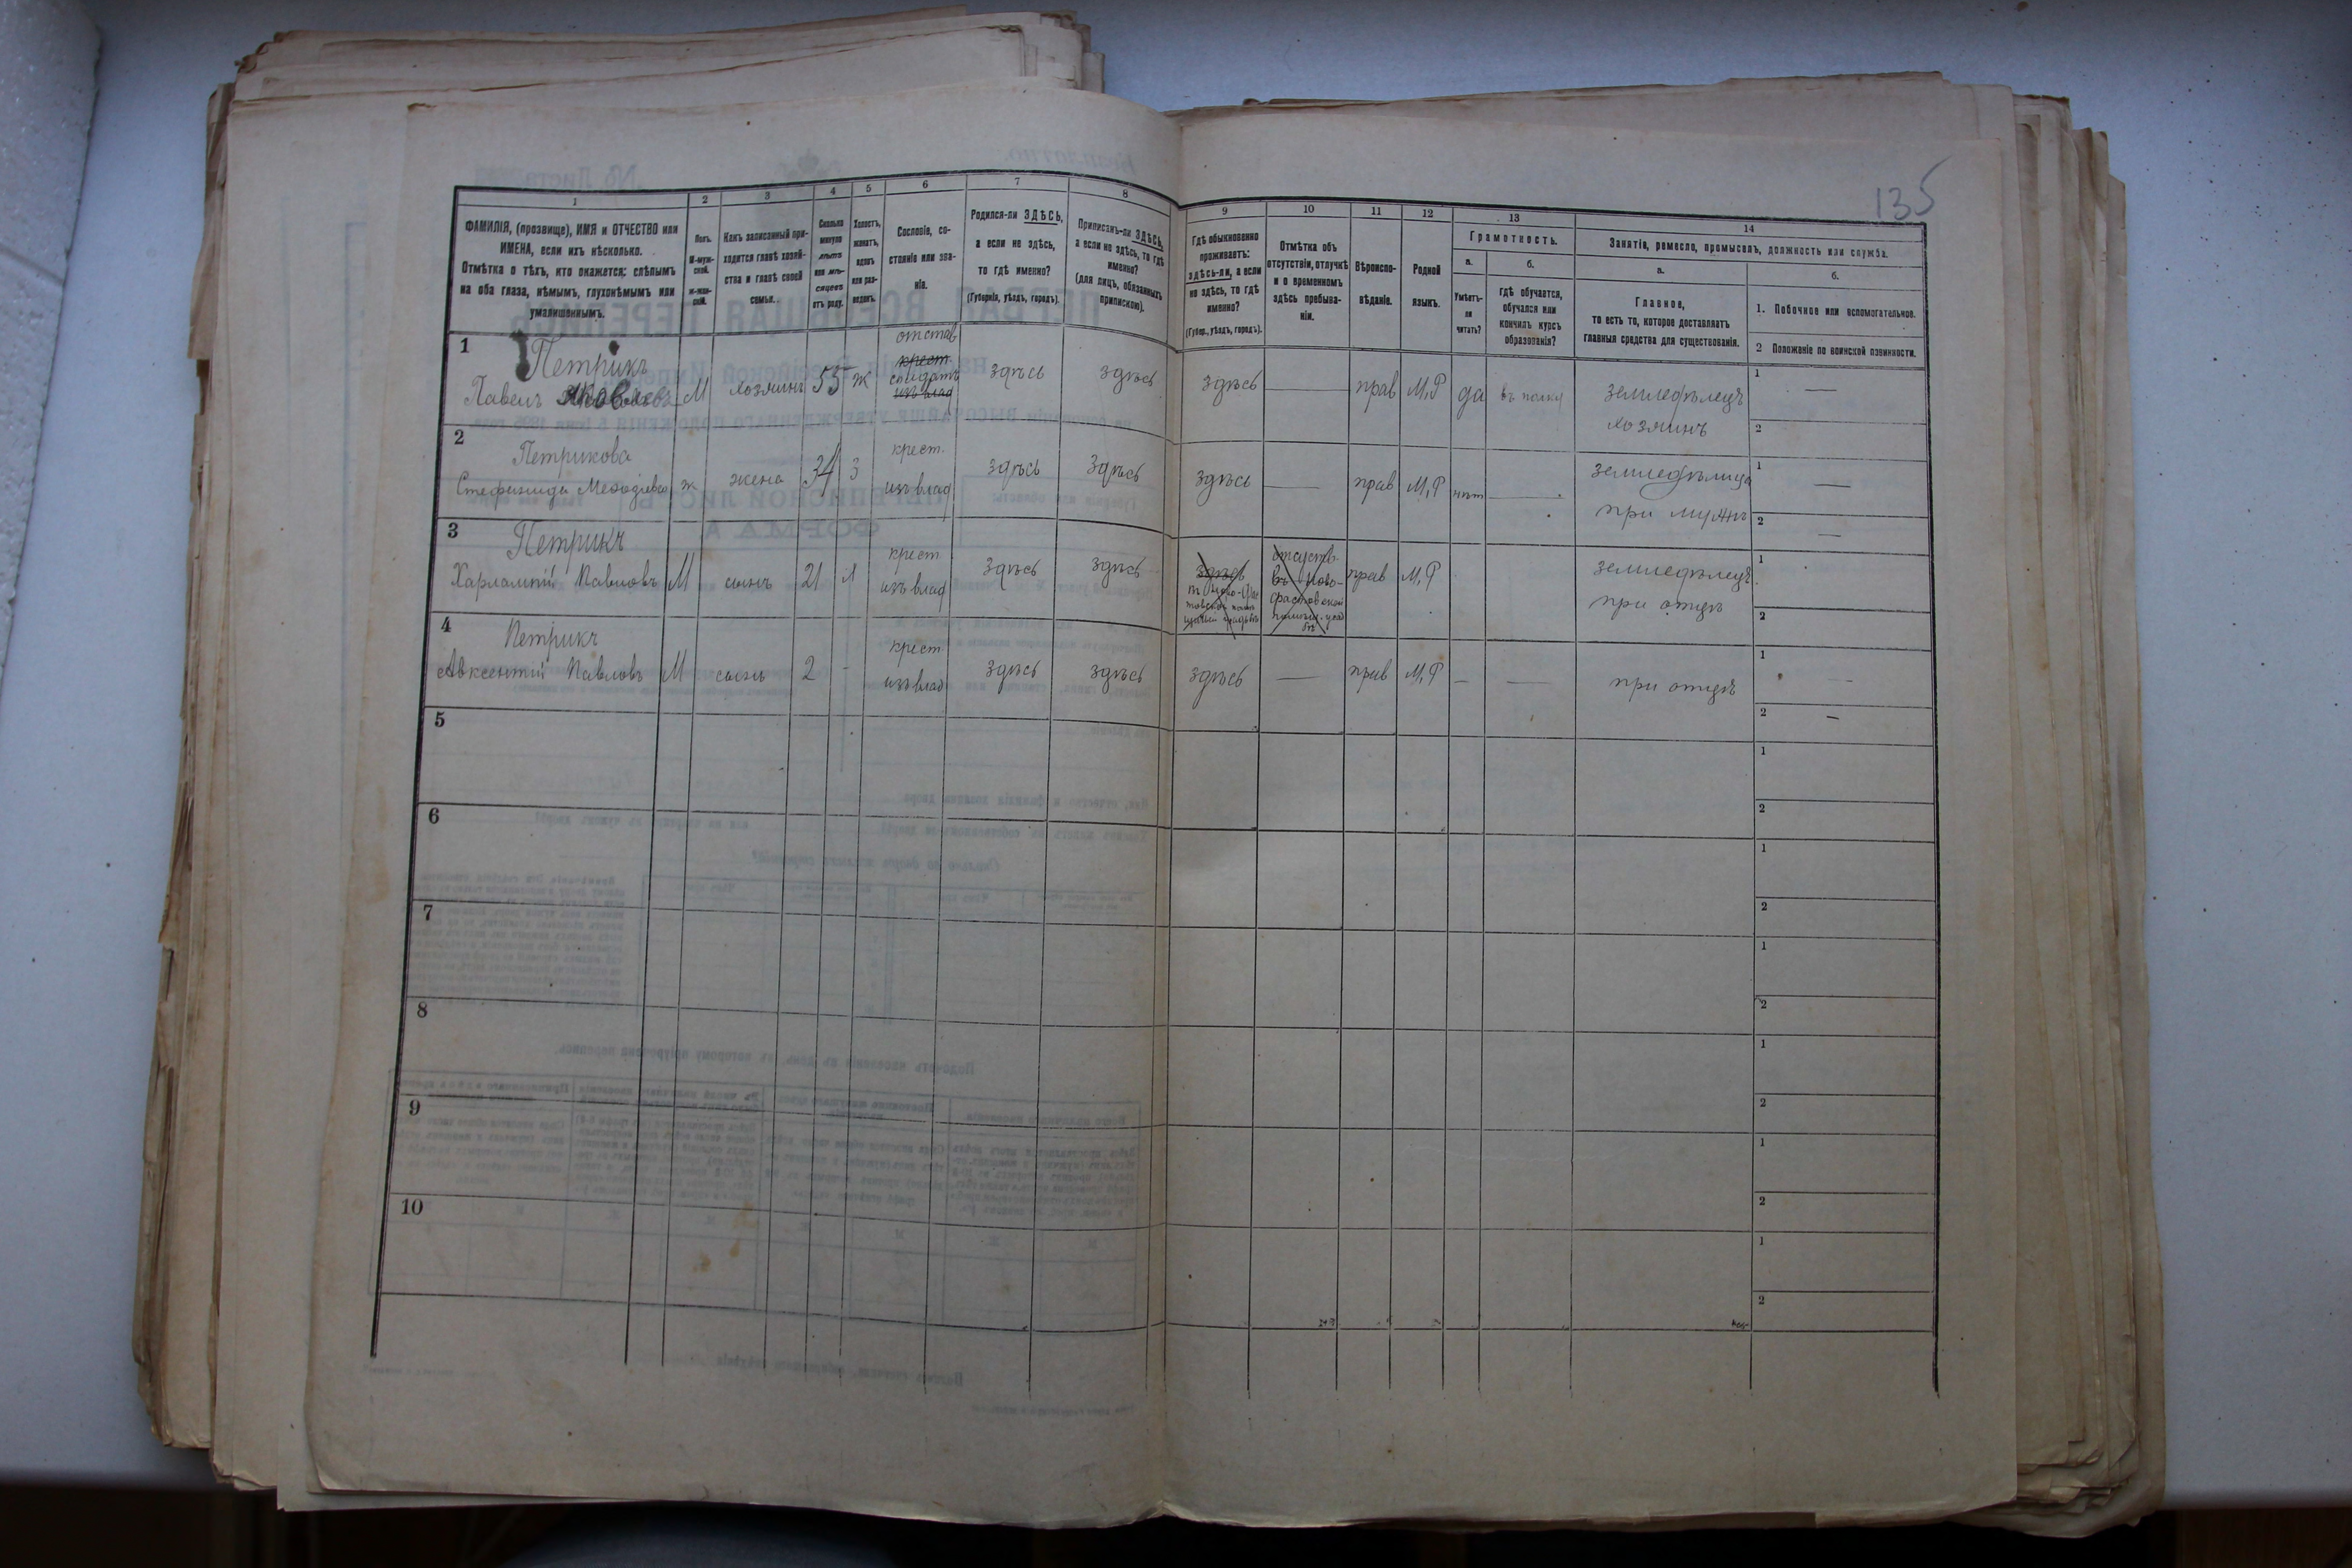 135
1
2
3
4
5
6
7
8
9
10
11
12
13
14
ФАМИЛІЯ, (прозвище), ИМЯ и ОТЧЕСТВО или
ИМЕНА, если ихъ нѣсколько.
Отмѣтка о тѣхъ, кто окажется: слѣпымъ
на оба глаза, нѣмымъ, глухонѣмымъ или
умалишеннымъ.
Полъ.
М-муж-
ской.
Ж-жен-
скій.
Какъ записанный при-
ходится главѣ хозяй-
ства и главѣ своей
семьи.
Сколько
минуло
лѣтъ
или мѣ-
сяцевъ
отъ роду.
Холостъ,
женатъ,
вдовъ
или раз-
веденъ.
Сословіе, со-
стояніе или зва-
ніе.
Родился-ли ЗДѢСЬ,
а если не здѣсь,
то гдѣ именно?
(Губернія, уѣздъ, городъ).
Приписанъ-ли ЗДѢСЬ,
а если не здѣсь, то гдѣ
именно?
(для лицъ, обязанныхъ
припискою).
Гдѣ обыкновенно
проживаетъ:
здѣсь-ли, а если
не здѣсь, то гдѣ
именно?
(Губер., уѣздъ, городъ).
Отмѣтка объ
отсутствіи, отлучкѣ
и о временномъ
здѣсь пребыва-
ніи.
Вѣроиспо-
вѣданіе.
Родной
языкъ.
Грамотность.
а.
б.
Умѣетъ-
ли
читать?
Гдѣ обучается,
обучался или
кончилъ курсъ
образованія?
Занятіе, ремесло, промыселъ, должность или служба.
а.
б.
Главное,
то есть то, которое доставляетъ
главныя средства для существованія.
1. Побочное или вспомогательное.
2 Положеніе по воинской повинности.
1
Петрикъ
Павелъ Яковлевъ
М
хозяинъ
55
ж
отстав
крест.
солдатъ
изъ влад
здѣсь
здѣсь
здѣсь
—
прав
М,Р
да
въ полку
земледѣлецъ
хозяинъ
1 —
2
2
Петрикова
Стефанида Меѳодіева
ж
жена
34
з
крест.
изъ влад
здѣсь
здѣсь
здѣсь
—
прав
М,Р
нѣт
—
земледѣлица
при мужѣ
1 —
2 —
3
Петрикъ
Харлампій Павловъ
М
сынъ
21
х
крест
изъ влад
здѣсь
здѣсь
здѣсь
отсутств.
въ Ново-
фастовской
прав
М,Р
земледѣлецъ
при отцѣ
1
2
4
Петрикъ
Авксентій Павловъ
М
сынъ
2
-
крест
изъ влад
здѣсь
здѣсь
здѣсь
—
прав
М,Р
—
—
при отцѣ
1 —
2 —
5
1
2
6
1
2
7
1
2
8
1
2
9
1
2
10
1
2